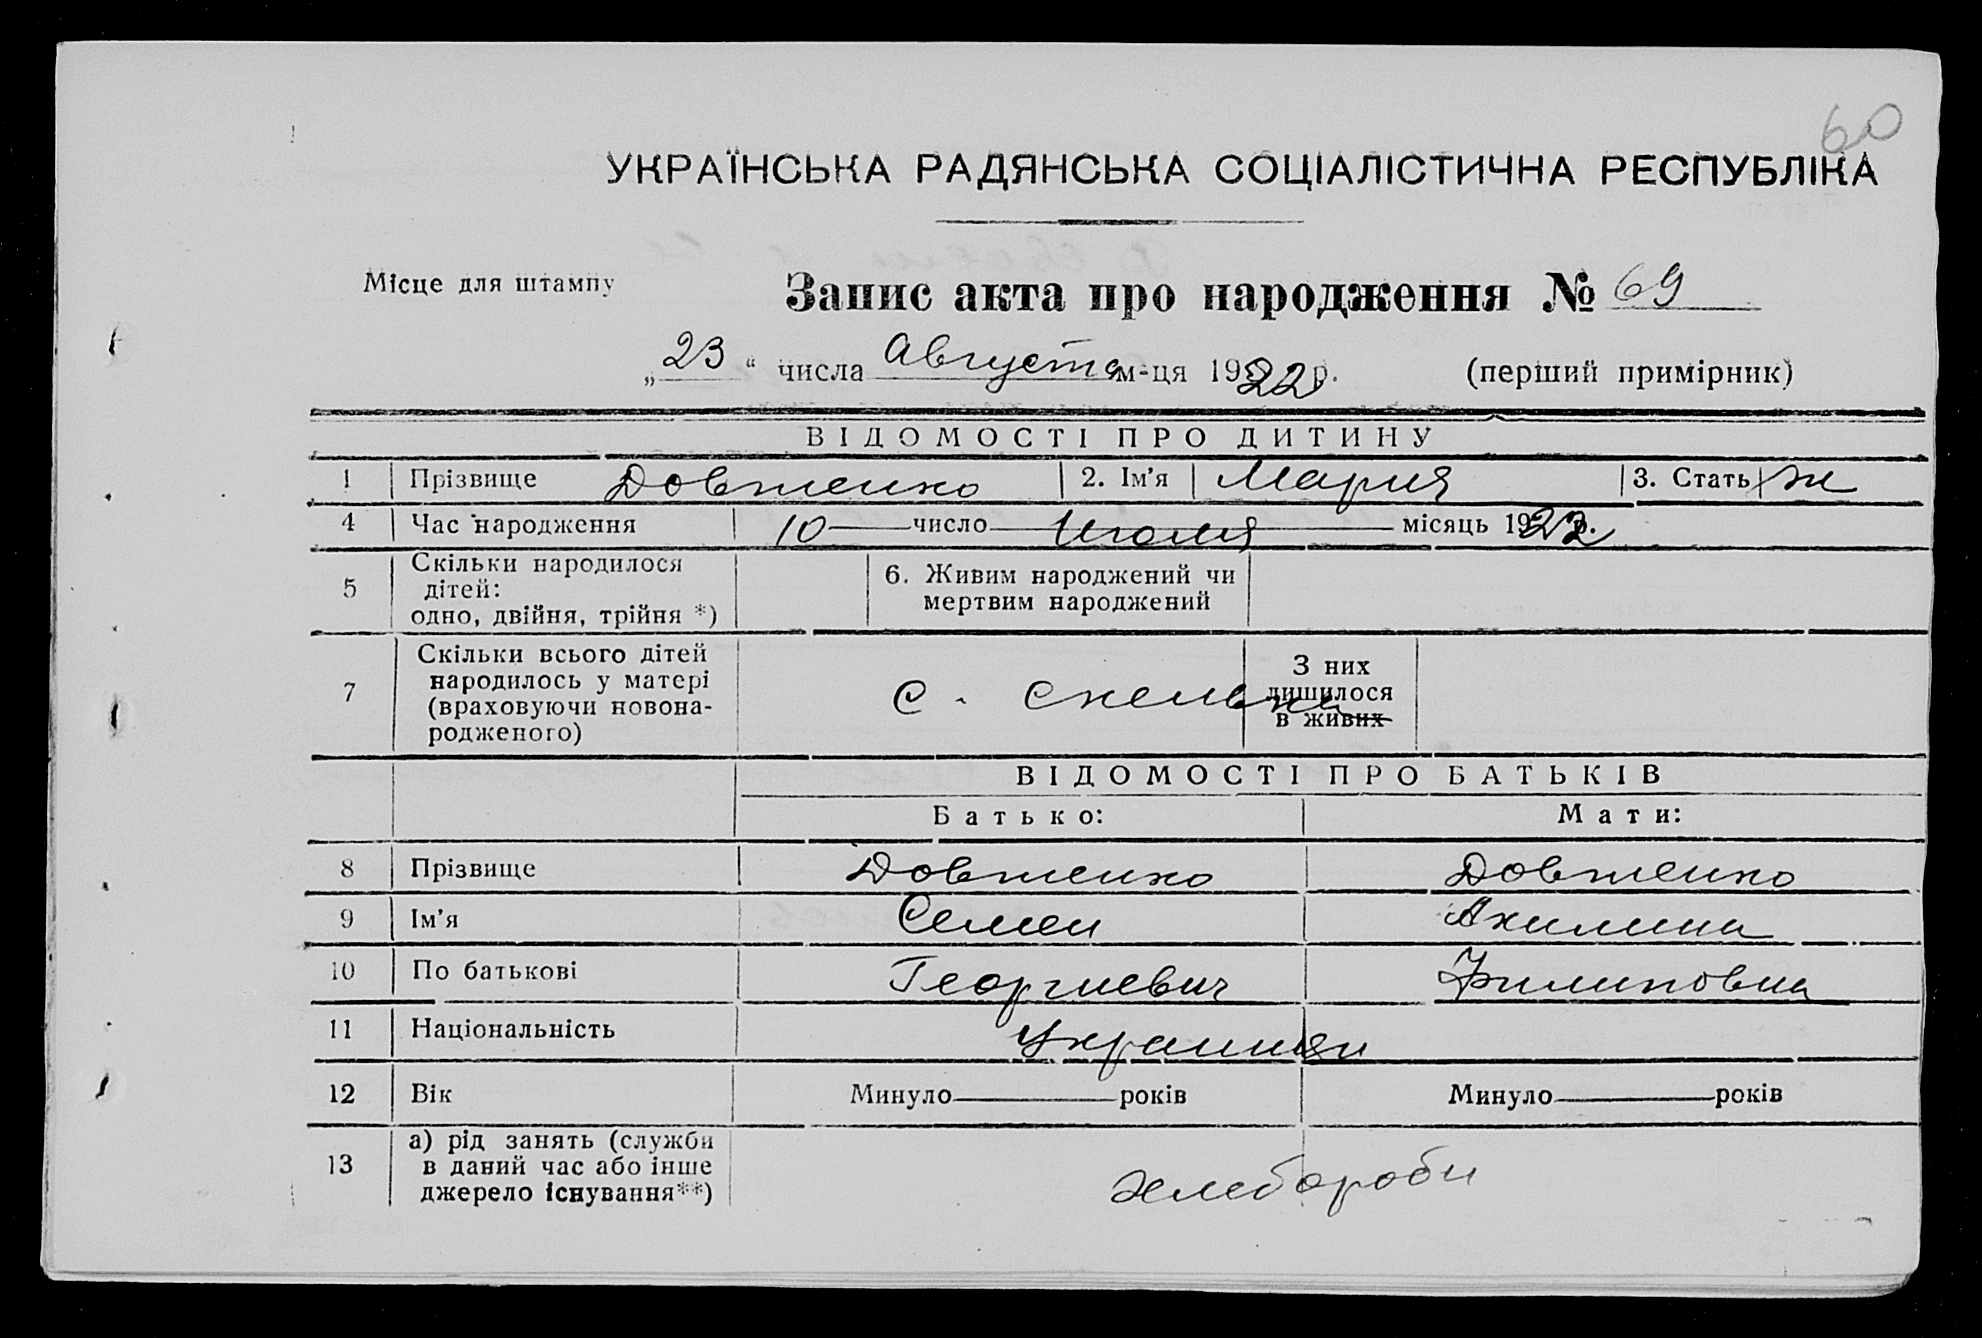 60
УКРАЇНСЬКА РАДЯНСЬКА СОЦІАЛІСТИЧНА РЕСПУБЛІКА
Місце для штампу
Запис акта про народження № 69
„23“ числа Августа м-ця 1922 р. (перший примірник)
ВІДОМОСТІ ПРО ДИТИНУ
1 Прізвище Довженко 2. Ім'я Мария 3. Стать ж
4 Час народження 10 число Июля місяць 1922 р.
5 Скільки народилося дітей: одно, двійня, трійня *) 6. Живим народжений чи мертвим народжений
7 Скільки всього дітей народилось у матері (враховуючи новонародженого) с. Скельки З них лишилося в живих
ВІДОМОСТІ ПРО БАТЬКІВ
Батько: Мати:
8 Прізвище Довженко Довженко
9 Ім'я Семен Акилина
10 По батькові Георгиевич Филиповна
11 Національність Украинцы
12 Вік Минуло років Минуло років
13 а) рід занять (служби в даний час або інше джерело існування**) хлебороби